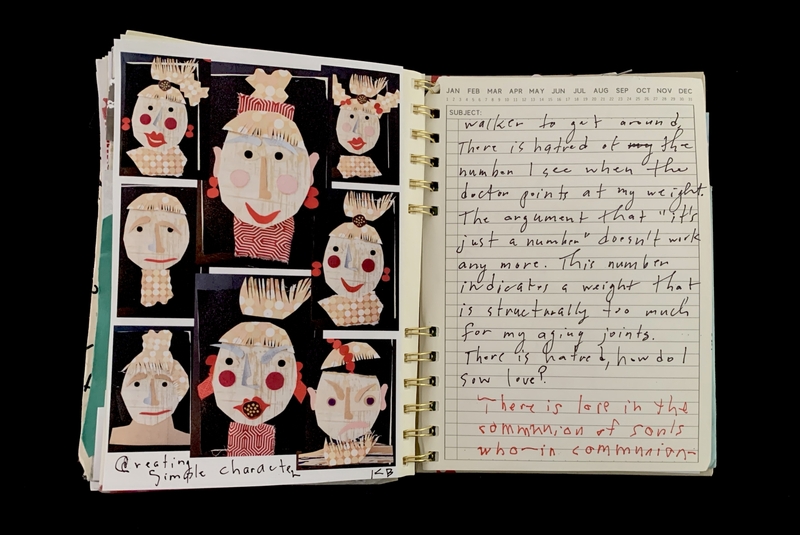 Creating
Simple character
KB
JAN FEB MAR APR MAY JUN JUL AUG SEP OCT NOV DEC
SUBJECT:
walker to get around.
There is hatred of my the
number I see when the
doctor points at my weight.
The argument that "it's
just a number" doesn't work
any more. This number
indicates a weight that
is structurally too much
for my aging joints.
There is hatred, how do I
sow love?
There is loss in the
communion of souls
who in communion